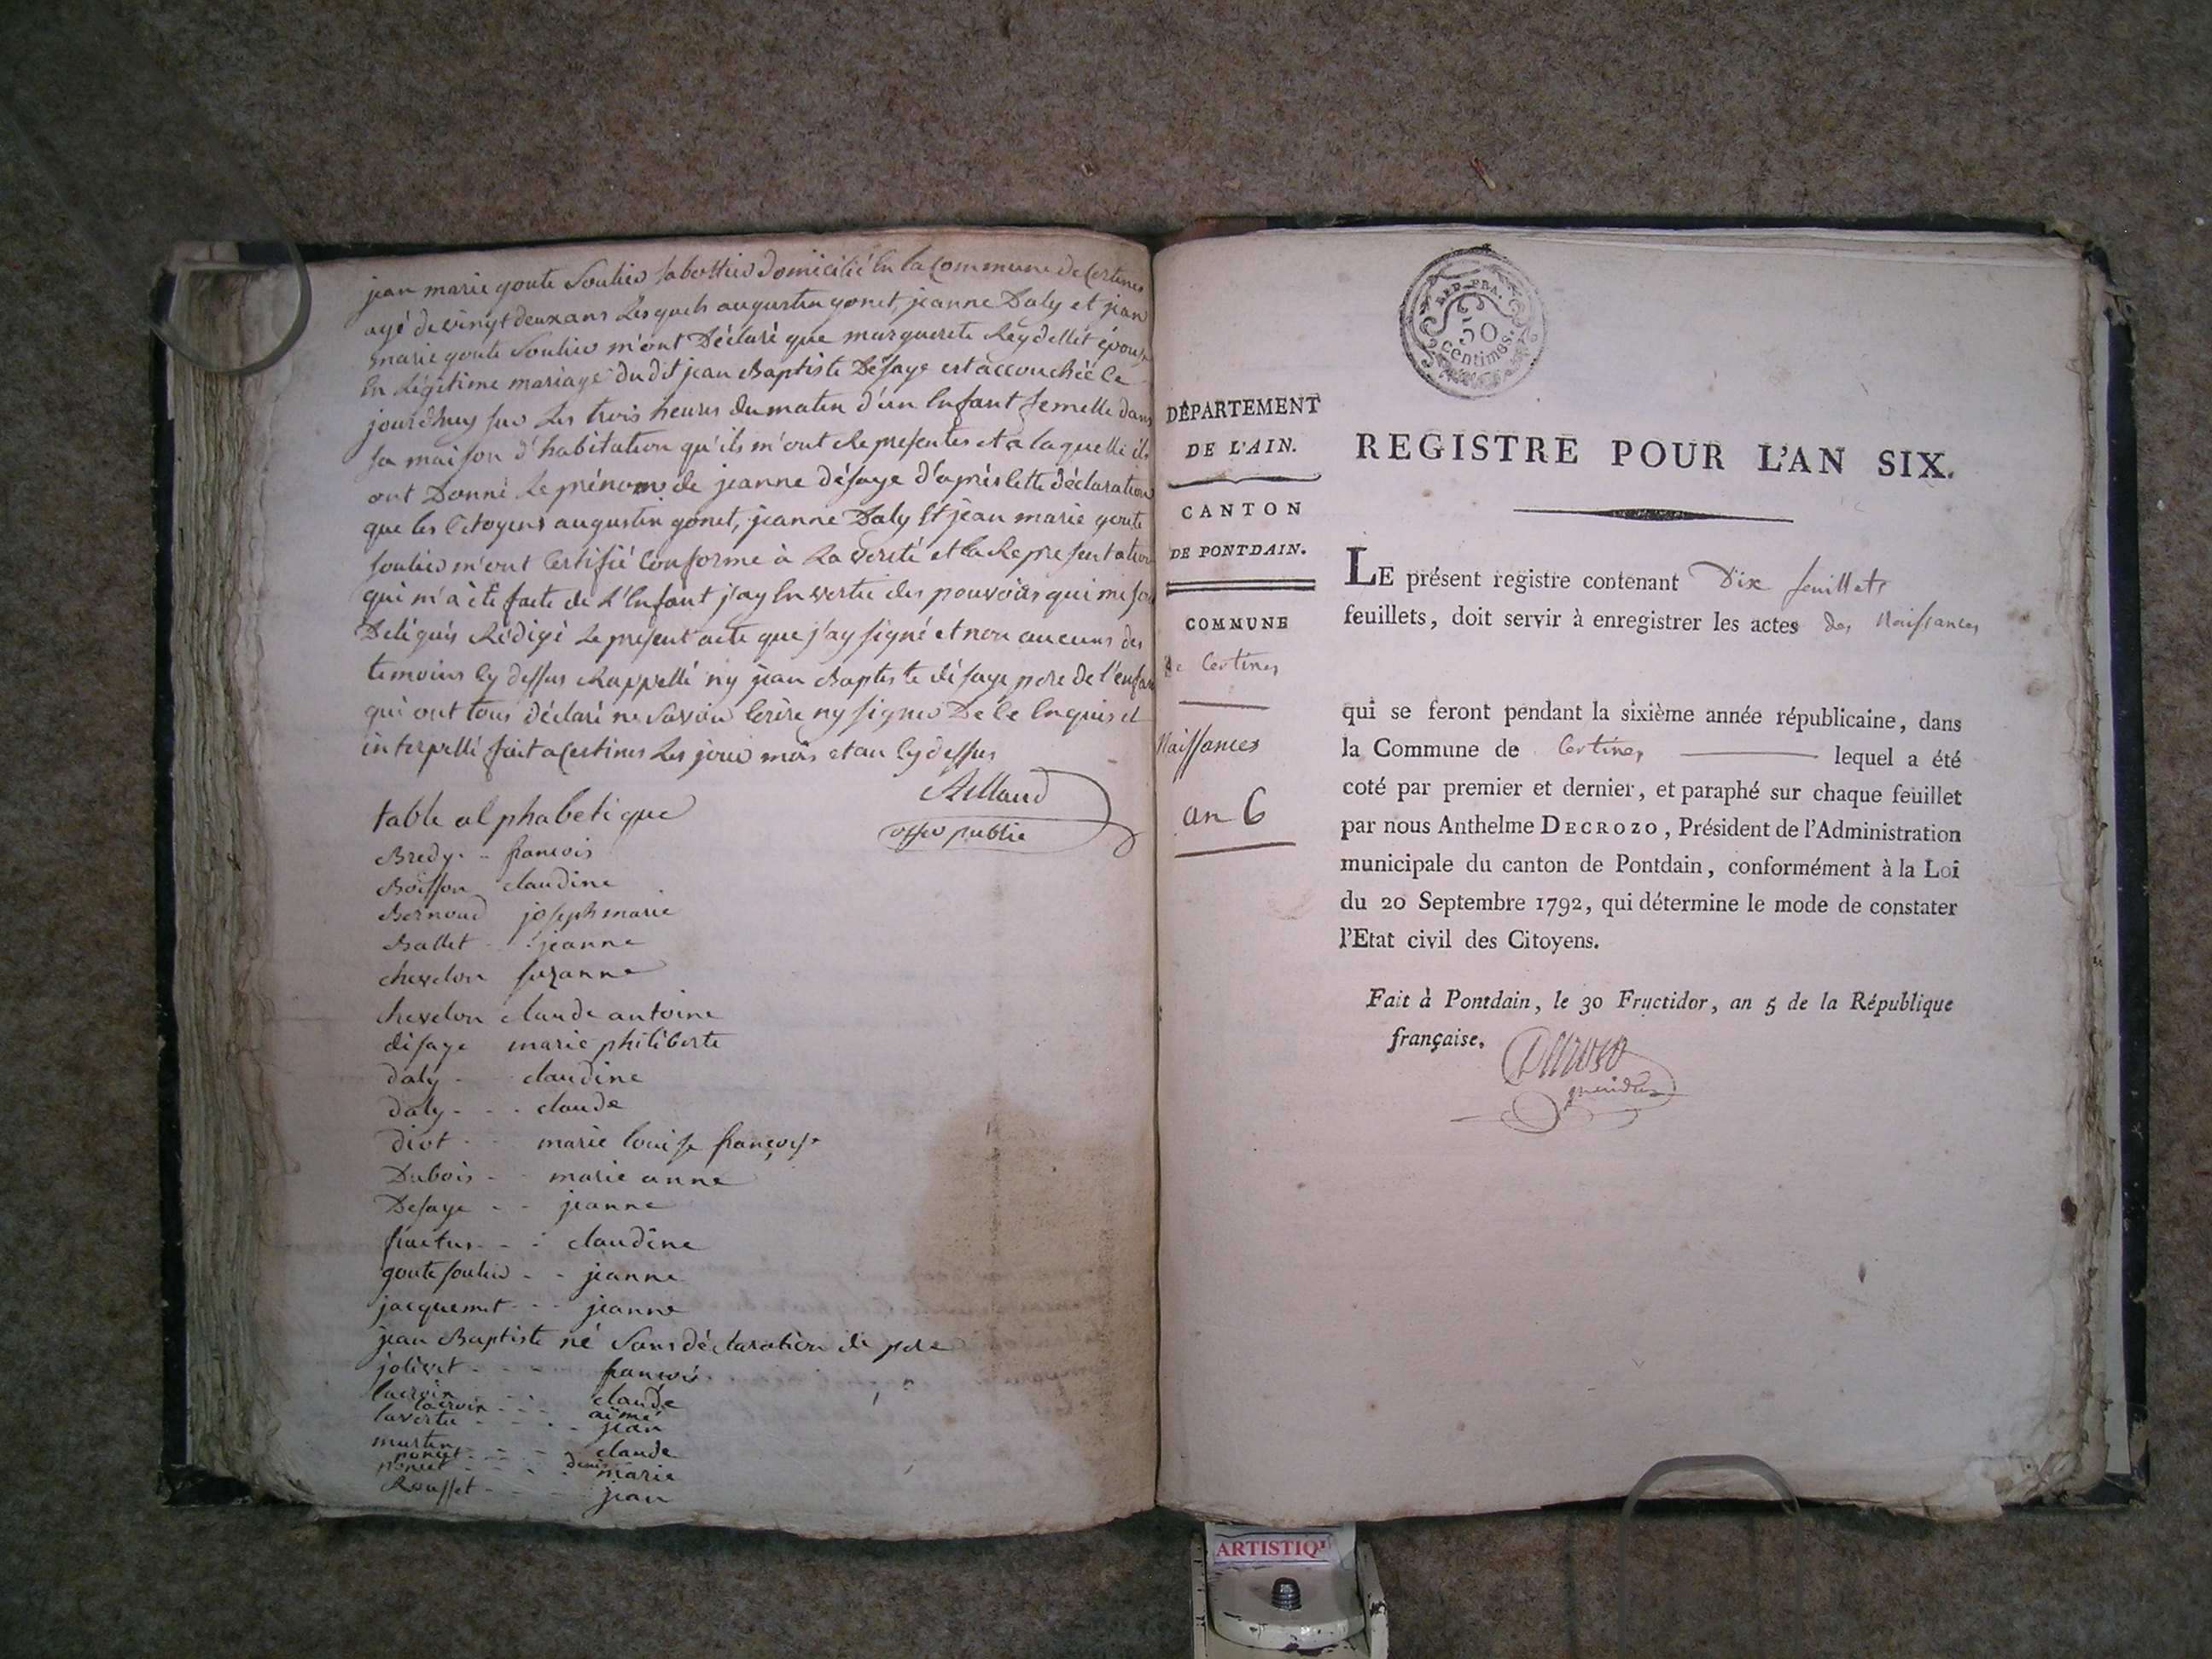 jean marie goute Soulier sabottier domicilié En la Commune de Certines
agé de vingt deux ans Les quels augustin gonet, jeanne Daly et jean
marie goute Soulier m'ont Déclaré que marguerite Reydellet épouse
En Légitime mariage du dit jean Baptiste Défaye est accouchée Ce
jourdhuy sur Les trois heures du matin d'un Enfant femelle dans
sa maison d'habitation qu'ils m'ont Representes et a laquelle ils
ont Donné Le prénom de jeanne défaye d'après Cette déclaration
que les Citoyens augustin gonet, jeanne Daly Et jean marie goute
soulier m'ont Certifié Conforme à La verité et la Representation
qui m'a été faite de L'Enfant j'ay En vertu des pouvoirs qui me son
Delégués Rédigé Le present acte que j'ay signé et non aucuns des
temoins Cy dessus Rappellé ny jean Baptiste défaye pere de l'enfan
qui ont tous déclaré ne Savoir Ecrire ny signer De Ce Enquis et
interpellé fait a Certines Les jour mois et an Cy dessus
Rilland
offer public
table alphabetique
Bredy - - francois
Boisson claudine
Bernoud joseph marie
Ballet - - jeanne
chevelon suzanne
chevelon claude antoine
défaye marie philiberte
daly - claudine
daly - - - claude
diot - - marie louise françoise
Dubois - - marie anne
Defaye - - jeanne
fructus - - - claudine
goute soulier - - jeanne
jacquemet - - - jeanne
jean Baptiste né Sans déclaration de pere
jolivet - - - francois
lacroix - - - claude
lacroix - - - aimé
lavertu - - - - jean
martin - - - claude
poncet - - - denis
poncet - - - marie
Rousset - - - jean
RÉP. FRA.
50
centimes.
DÉPARTEMENT
DE L'AIN.
CANTON
DE PONTDAIN.
COMMUNE
de Certines
Naissances
an 6
REGISTRE POUR L'AN SIX.
LE présent registre contenant Dix feuillets
feuillets, doit servir à enregistrer les actes des Naissances
qui se feront pendant la sixième année républicaine, dans
la Commune de Certines lequel a été
coté par premier et dernier, et paraphé sur chaque feuillet
par nous Anthelme DECROZO, Président de l'Administration
municipale du canton de Pontdain, conformément à la Loi
du 20 Septembre 1792, qui détermine le mode de constater
l'Etat civil des Citoyens.
Fait à Pontdain, le 30 Fructidor, an 5 de la République
française.
Decrozo
president
ARTISTIQ